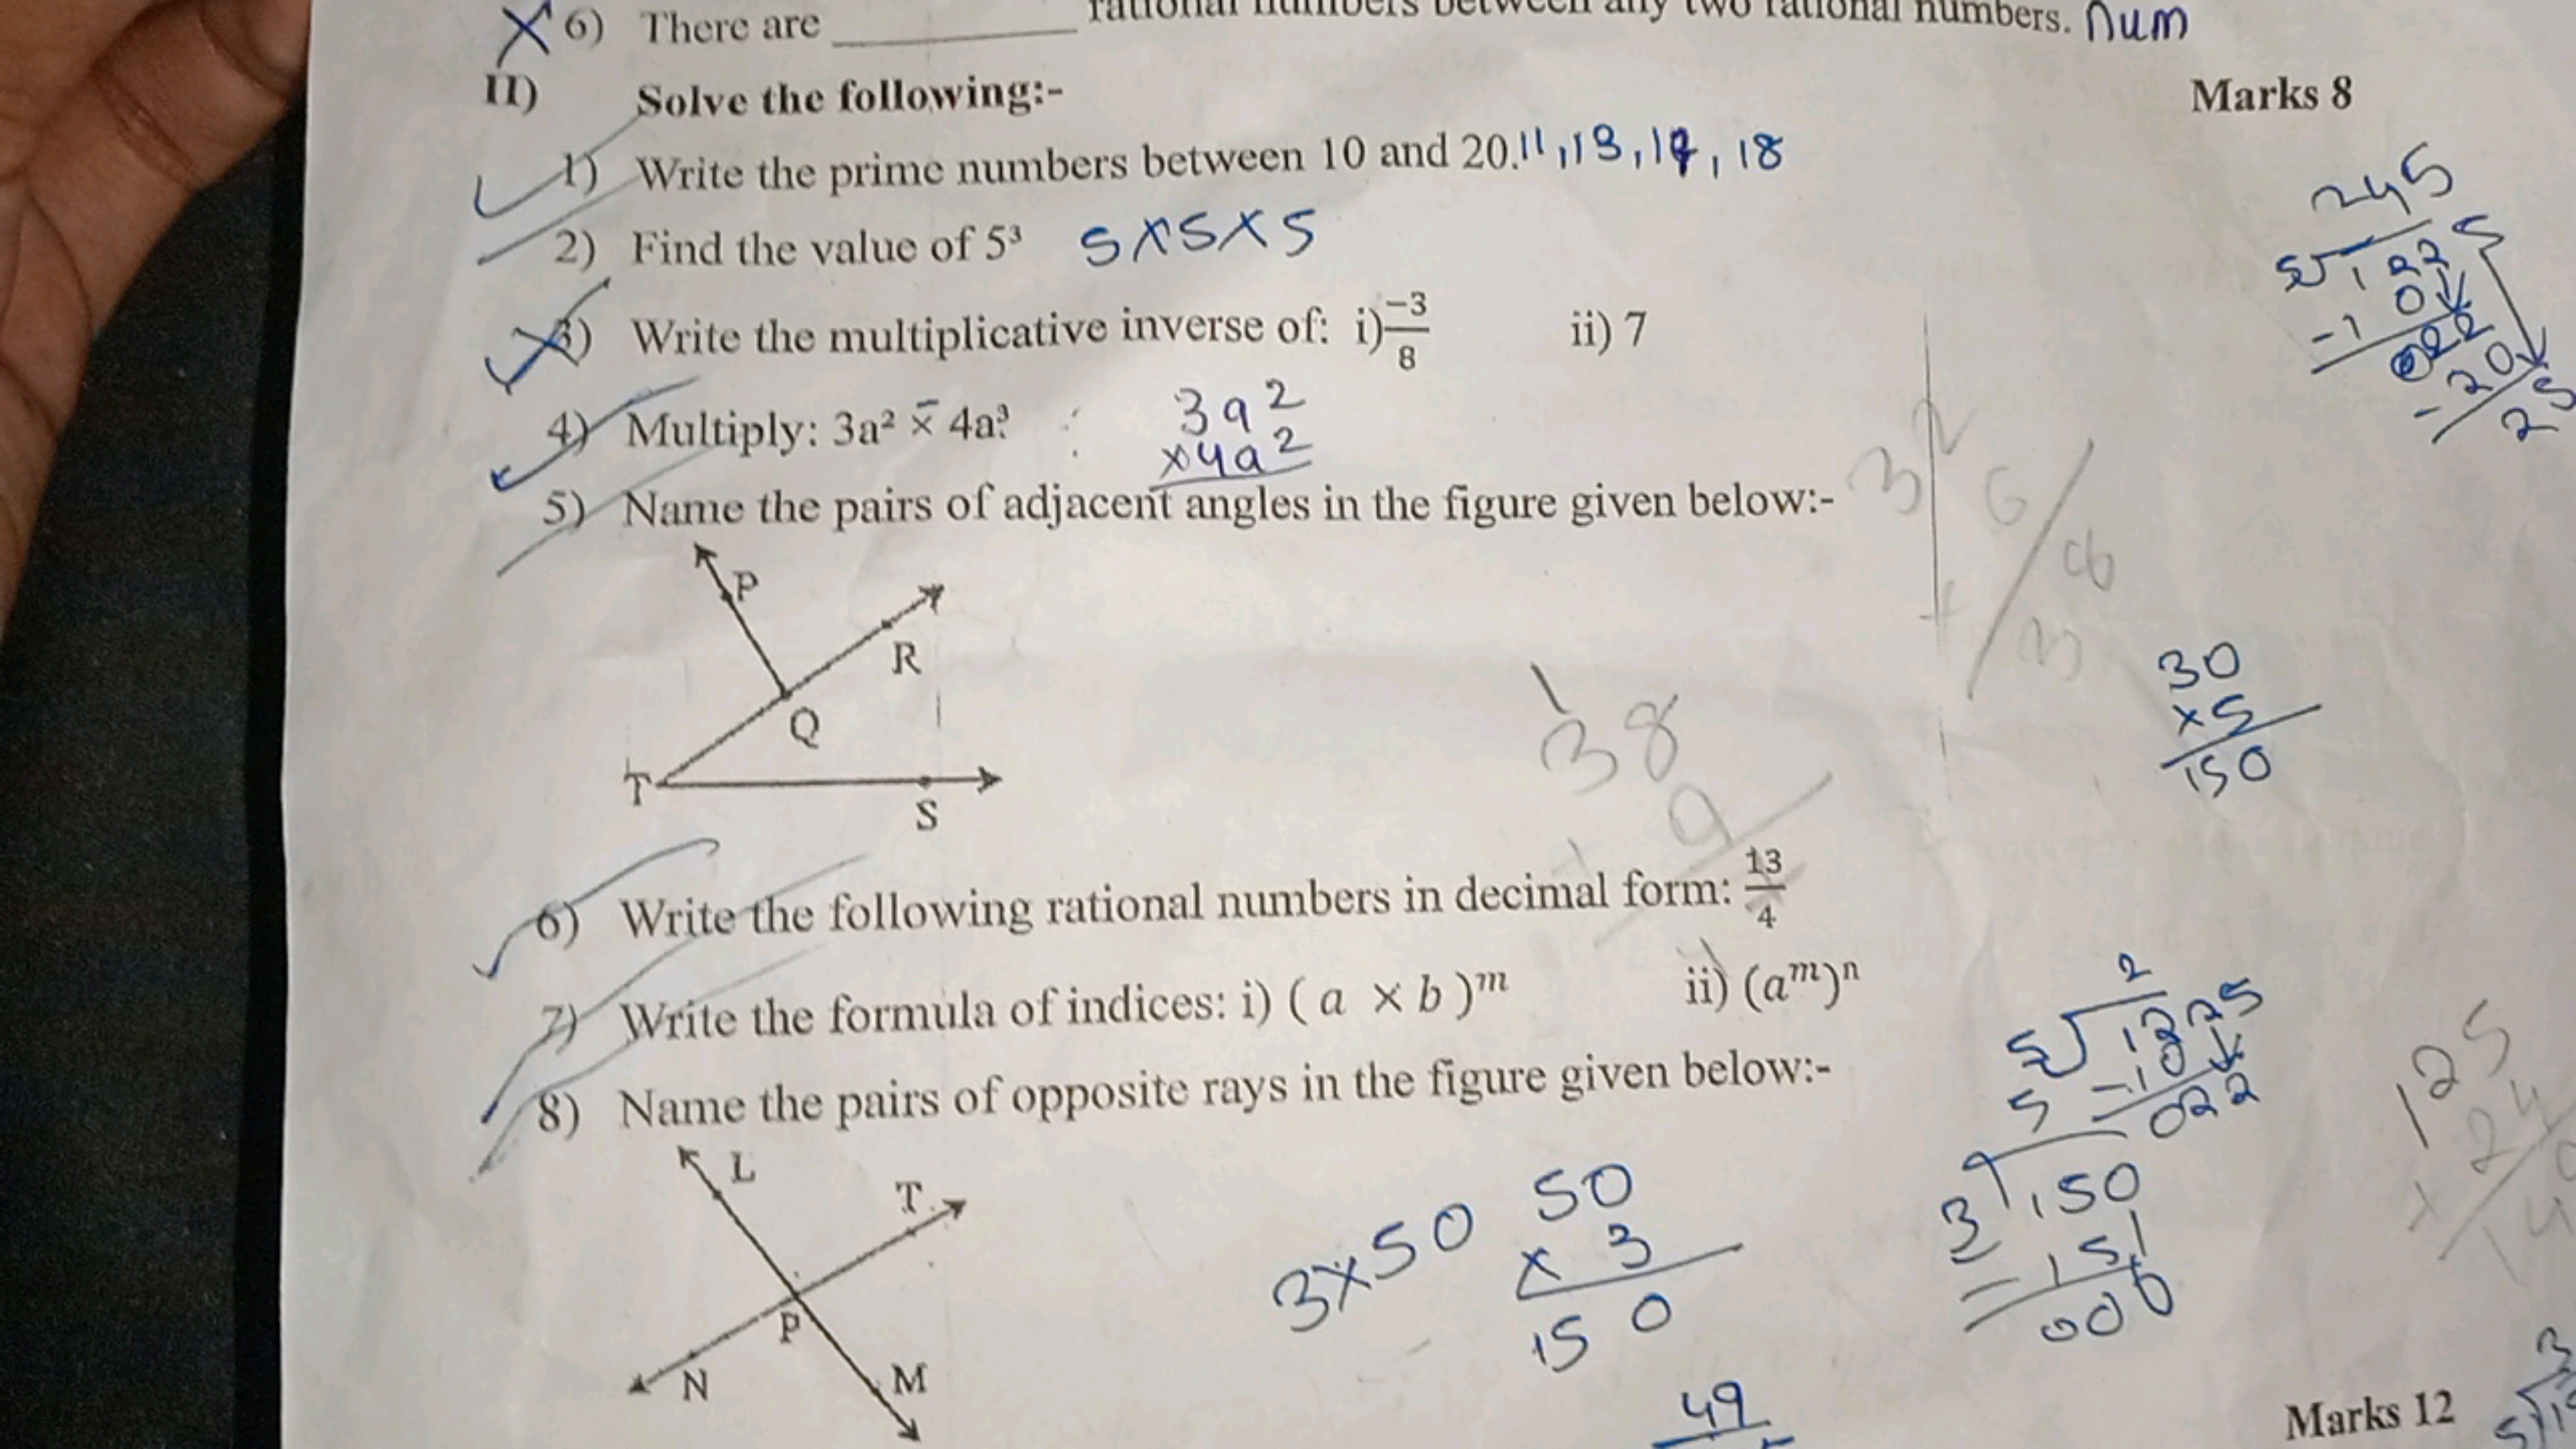 6) There are ________ rational numbers between any two rational numbers. num
II) Solve the following:- Marks 8
1) Write the prime numbers between 10 and 20. 11, 13, 17, 18
2) Find the value of 5³ 5×5×5
3) Write the multiplicative inverse of: i) −3/8 ii) 7
4) Multiply: 3a² × 4a³
3a²
×4a²
5) Name the pairs of adjacent angles in the figure given below:-
P
R
Q
T
S
245
30
×5
150
38
9
6) Write the following rational numbers in decimal form: 13/4
7) Write the formula of indices: i) ( a × b )ᵐ ii) (aᵐ)ⁿ
8) Name the pairs of opposite rays in the figure given below:-
L
T
P
N
M
3×50
50
× 3
150
3 150
15
000
125
× 24
49
Marks 12